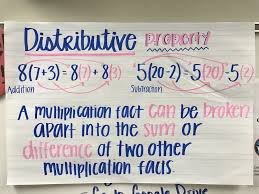 Distributive property
8(7+3) = 8(7) + 8(3) 5(20-2) = 5(20) - 5(2)
Addition Subtraction
A multiplication fact can be broken
apart into the sum or
difference of two other
multiplication facts.